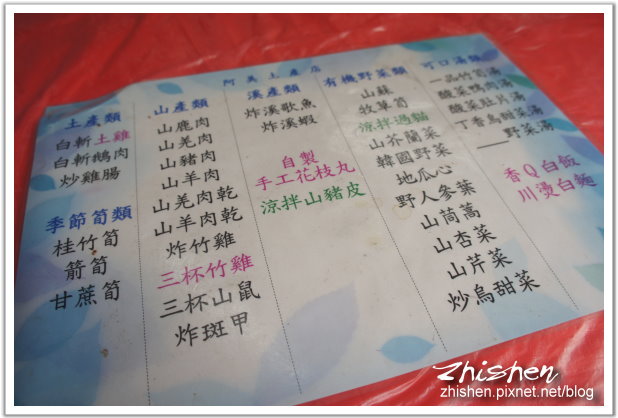 阿美土產店
土產類
白斬土雞
白斬鵝肉
炒雞腸
季節筍類
桂竹筍
箭筍
甘蔗筍
山產類
山鹿肉
山羌肉
山豬肉
山羊肉
山羌肉乾
山羊肉乾
炸竹雞
三杯竹雞
三杯山鼠
炸斑甲
溪產類
炸溪歌魚
炸溪蝦
自製
手工花枝丸
涼拌山豬皮
有機野菜類
山蘇
牧草筍
涼拌過貓
山芥蘭菜
韓國野菜
地瓜心
野人參葉
山茼蒿
山杏菜
山芹菜
炒烏甜菜
可口湯類
一品竹筍湯
酸菜鴨肉湯
酸菜肚片湯
丁香烏甜菜湯
____野菜湯
香Q白飯
川燙白麵
Zhishen
zhishen.pixnet.net/blog